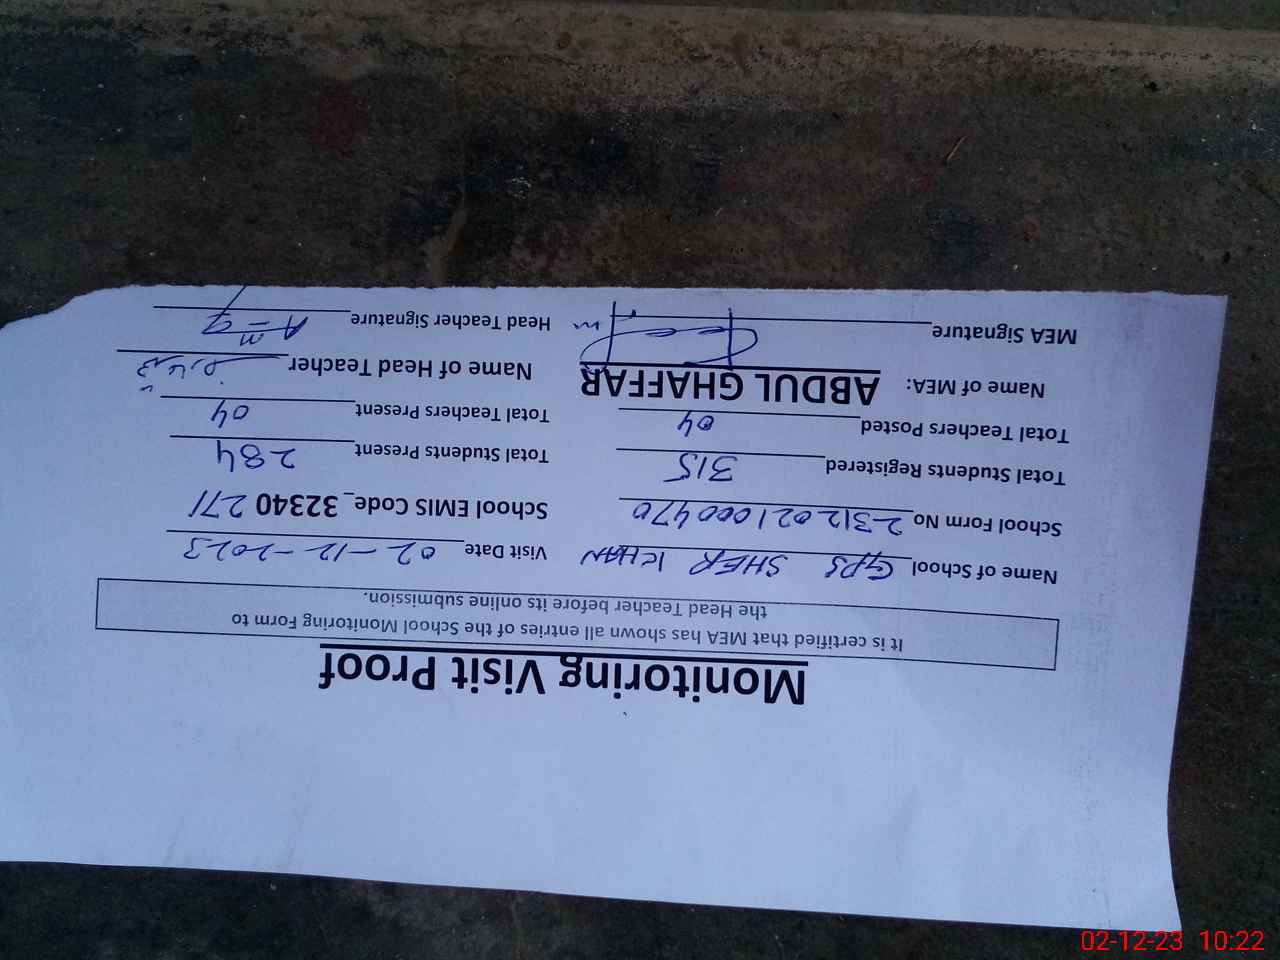 Monitoring Visit Proof
It is certified that MEA has shown all entries of the School Monitoring Form to
the Head Teacher before its online submission.
Name of School GPS SHER KHAN Visit Date 02-12-2023
School Form No 2312021000470 School EMIS Code_32340 271
Total Students Registered 315 Total Students Present 284
Total Teachers Posted 04 Total Teachers Present 04
Name of MEA: ABDUL GHAFFAR Name of Head Teacher
MEA Signature Head Teacher Signature
02-12-23 10:22